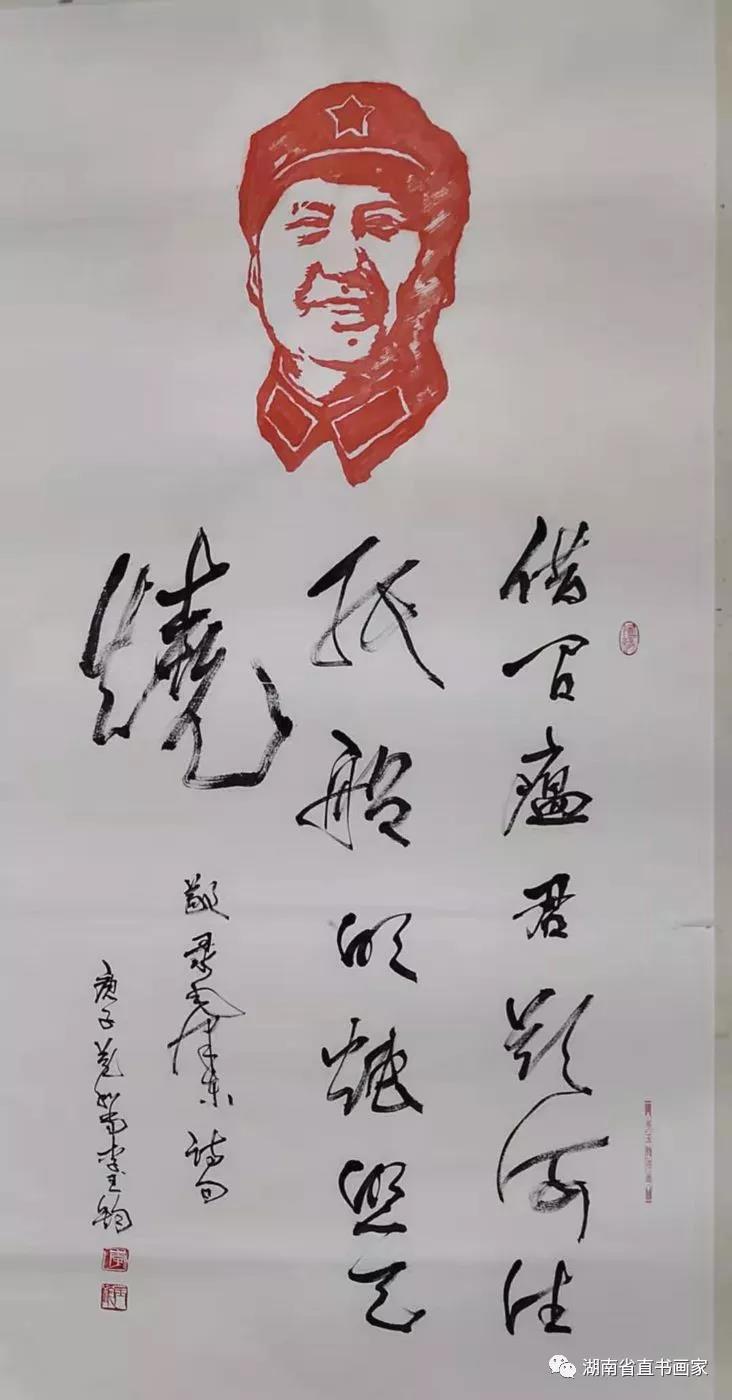 借问瘟君欲何往
纸船明烛照天
烧
敬录毛泽东诗句
庚子
湖南省直书画家